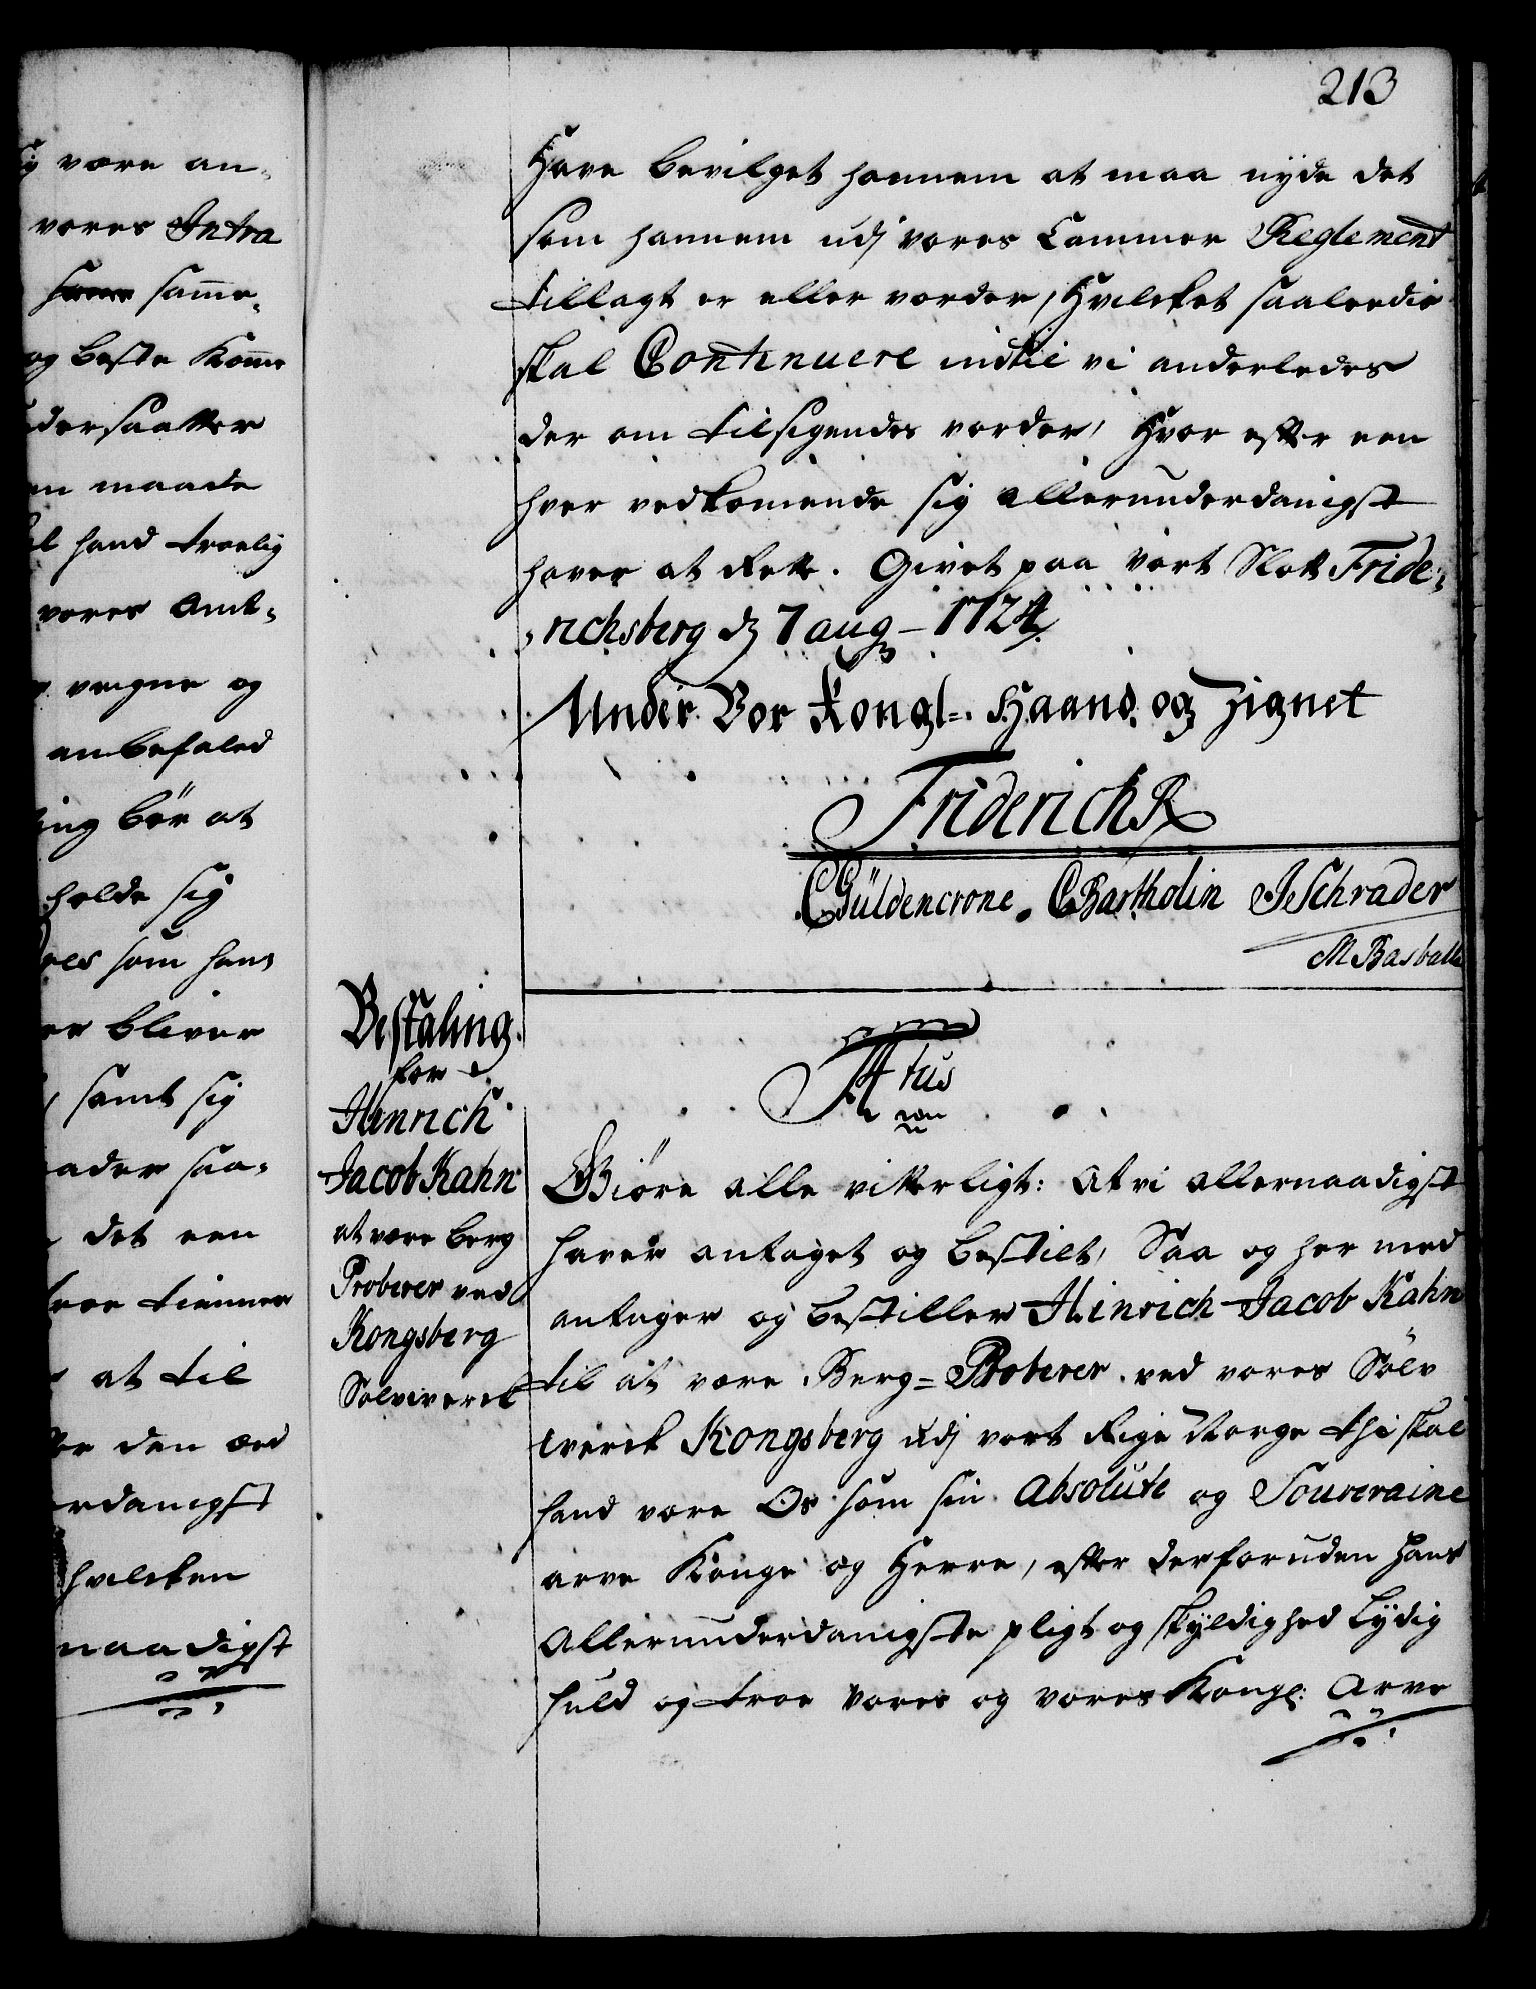 213
være an-
vores Intra
samme-
og beste Komme
dersaatter
en maade
hand troelig
vores Amt-
veigne og
anbefaled
ing bör at
holde sig
som hans
er bliver
samt sig
ader saa-
det een
troe tienner
at til
den æed
erdanigst
hvilcken
naadigst
Have bevilget hannem at maa nÿde det
som hannem udj vores Cammer Reglement
tillagt er eller vorder, Hvilcket saaleedis
skal Continuere indtil vi anderledes
der om tilsigendes vorder, Hvor efter een
hver vedkommende sig allerunderdanigst
haver at Rette. Givet paa vort Slott Fride-
richsberg d 7 aug- 1724
Under Vor Kongl=. Haand og Zignet
Friderich R
CGüldencrone. CBartholin JSchrader
M Basballe
Bestaling
for
Hinrich
Jacob Kahn
at være berg
Proberer ved
Kongsberg
Sølvwerck
A tus
Giöre alle vitterligt: At vi allernaadigst
haver antaget og bestilt, Saa og her med
antager og bestiller Hinrich Jacob Kahn
til at være Berg= Proberer ved vores Sölv
werck Kongsberg udj vort Rige Norge thi skal
hand være Os som sin Absolute og Souveraine
arve Konge og Herre, efter derforuden hans
Allerunderdanigste pligt og skÿldighed lÿdig
huld og troe vores og vores Kongl: Arve